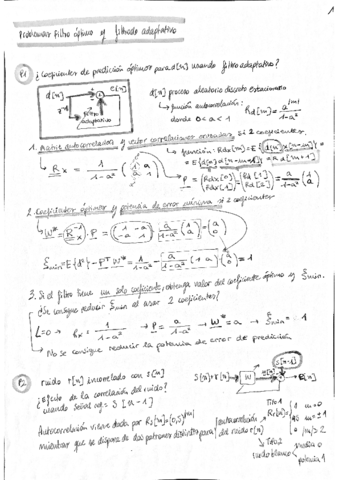 1
Problemas Filtro óptimo y filtrado adaptativo
P1 ¿Coeficientes de predicción óptimos para d[n] usando filtro adaptativo?
d[n]
z⁻¹
filtro adaptativo
d[n] proceso aleatorio discreto estacionario
función autocorrelación: Rd[m] = a^|m| / 1-a²
donde 0<a<1
1. Matriz autocorrelación y vector correlaciones cruzadas si 2 coeficientes.
Rx = 1/1-a² (1 a / a 1)
función: Rdx[m] = E{d[n]x[n-m]} =
= E{d[n]d[n-m-1]} = Rd[m+1]
P = (Rdx[0] / Rdx[1]) = (Rd[1] / Rd[2]) = a/1-a² (1 / a)
2. Coeficientes óptimos y potencia de error mínima si 2 coeficientes
W* = Rx⁻¹ · P = (1 -a / -a 1) · a/1-a² (1 / a) = (a / 0)
ξmin = E{d²} - Pᵀ W* = 1/1-a² - a/1-a² (1 a) (a / 0) = 1
3. Si el filtro tiene un solo coeficiente, obtenga valor del coeficiente óptimo y ξmin.
¿Se consigue reducir ξmin al usar 2 coeficientes?
L=0 → Rx = 1/1-a² → P = a/1-a² → W* = a → ξmin = 1
No se consigue reducir la potencia de error de predicción
P2 ruido r[n] incorrelado con s[n]
S[n]+r[n]
W
S[n-1]
E[n]
¿efecto de la correlación del ruido?
usando señal ref = S[n-1]
Autocorrelación viene dada por Rs[m]=(0,5)^|m|
mientras que se dispone de dos patrones distintos para autocorrelación del ruido r[n]
Tipo 1
Rr[m] = 1 m=0
m=±1
0 |m|≥2
Tipo 2
ruido blanco
media 0
potencia 1